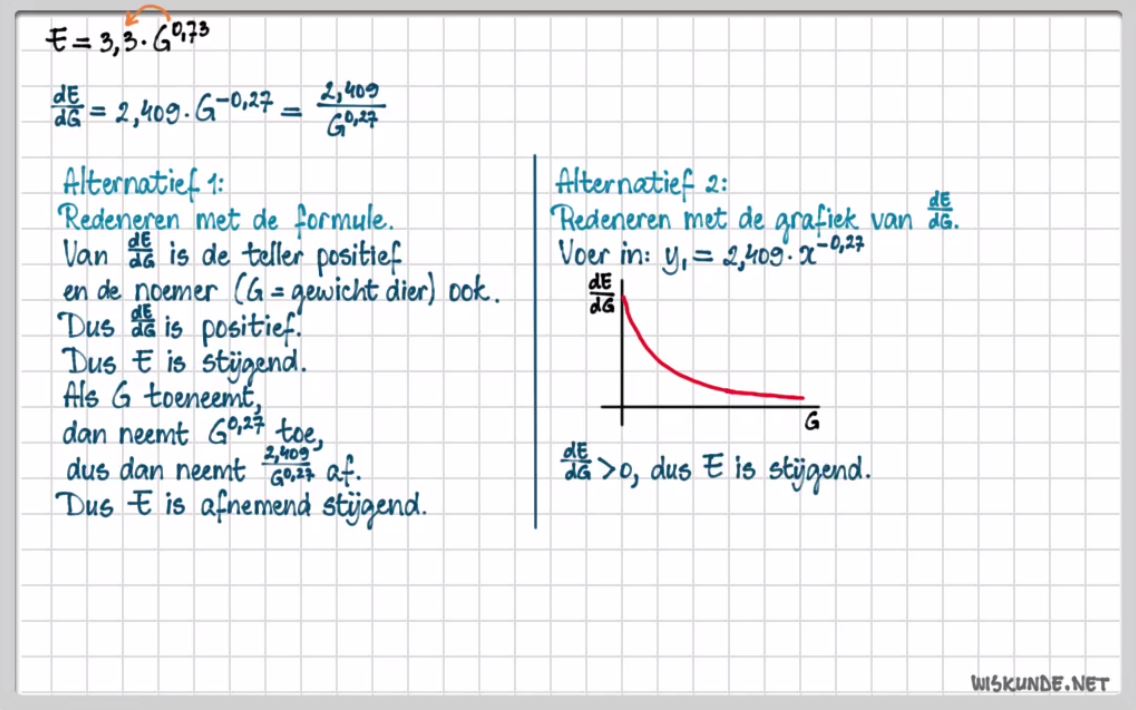 E = 3,3 · G^0,73
dE/dG = 2,409 · G^-0,27 = 2,409/G^0,27
Alternatief 1:
Redeneren met de formule.
Van dE/dG is de teller positief
en de noemer (G = gewicht dier) ook.
Dus dE/dG is positief.
Dus E is stijgend.
Als G toeneemt,
dan neemt G^0,27 toe,
dus dan neemt 2,409/G^0,27 af.
Dus E is afnemend stijgend.
Alternatief 2:
Redeneren met de grafiek van dE/dG.
Voer in: y₁ = 2,409 · x^-0,27
dE/dG
G
dE/dG > 0, dus E is stijgend.
WISKUNDE.NET